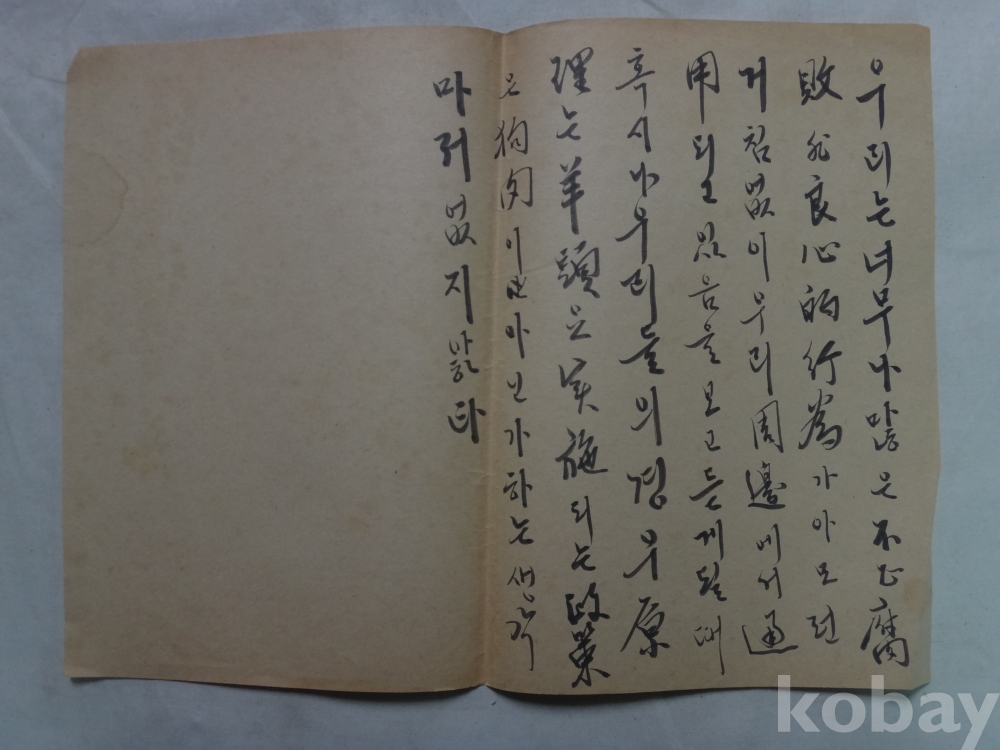 우리는너무나많은不正腐
敗非良心的行為가아모런
거침없이우리周邊에서通
用되고있음을보고듣게될때
혹시나우리들의경우原
理는羊頭요実施되는政策
은狗肉이안이가하는생각
마저없지않다
kobay